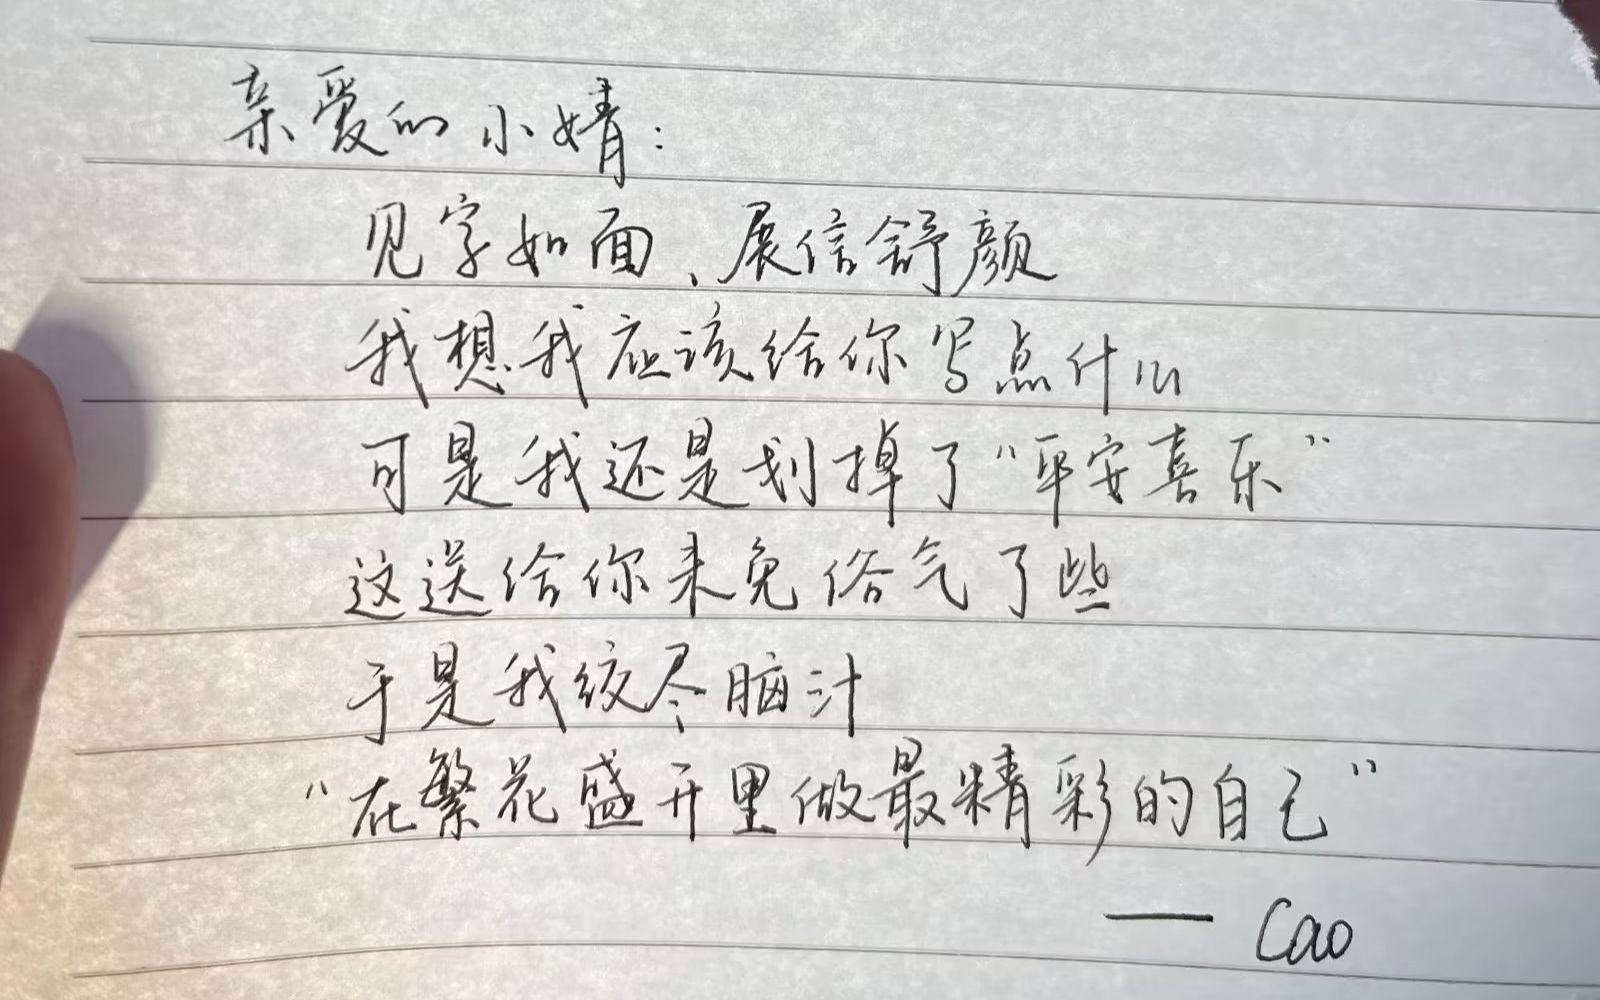 亲爱的小婧：
见字如面、展信舒颜
我想我应该给你写点什么
可是我还是划掉了“平安喜乐”
这送给你未免俗气了些
于是我绞尽脑汁
“在繁花盛开里做最精彩的自己”
—— Cao